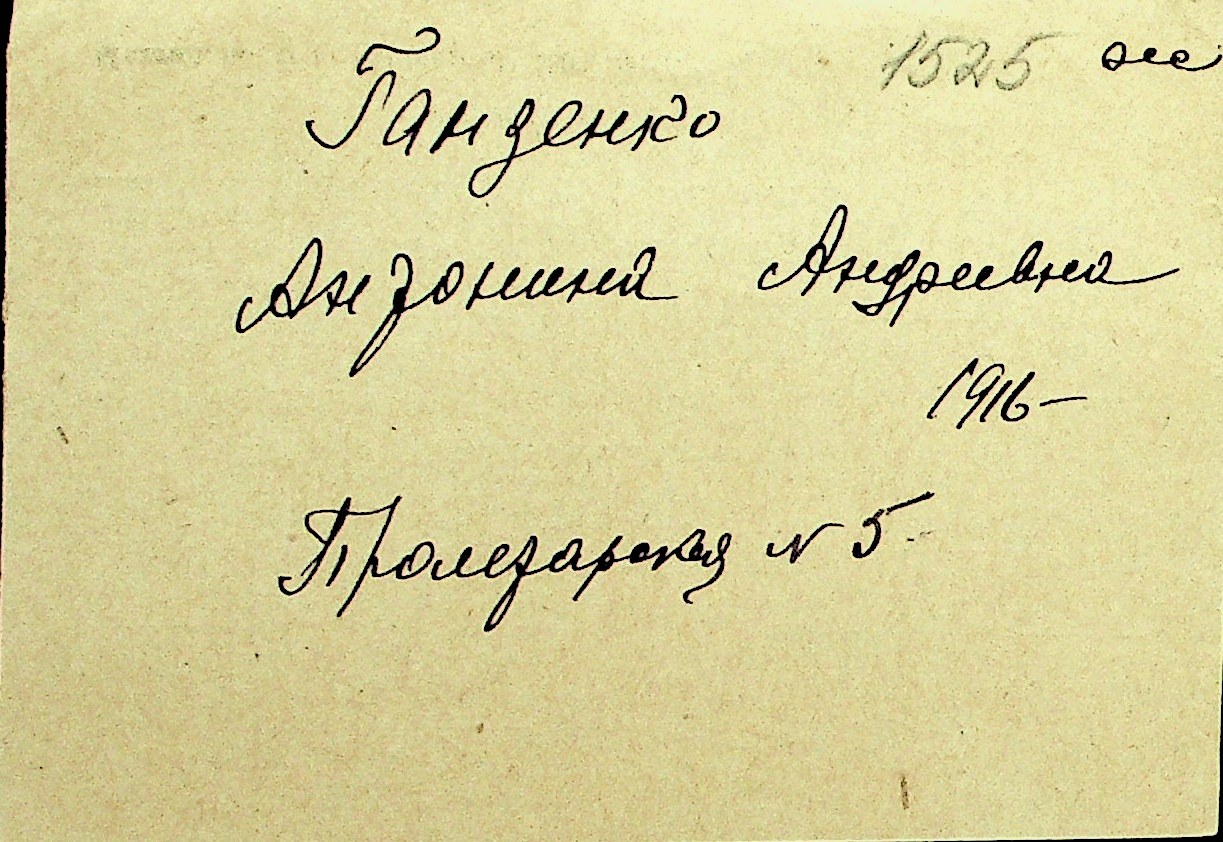 1525 ж
Ганзенко
Антонина Андреевна
1916-
Пролетарская N 5